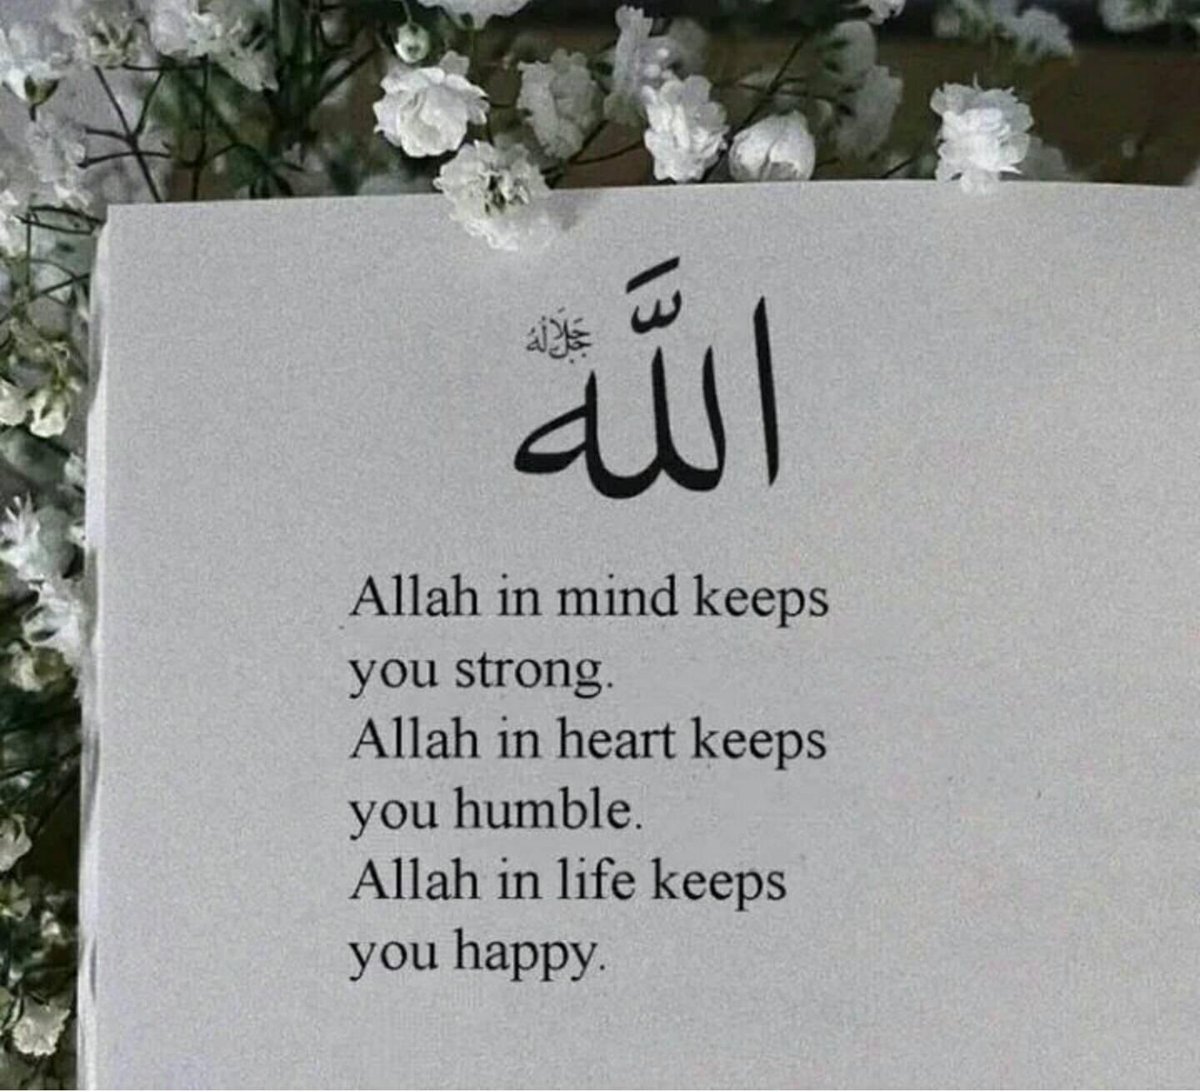 الله
جل جلاله
Allah in mind keeps
you strong.
Allah in heart keeps
you humble.
Allah in life keeps
you happy.